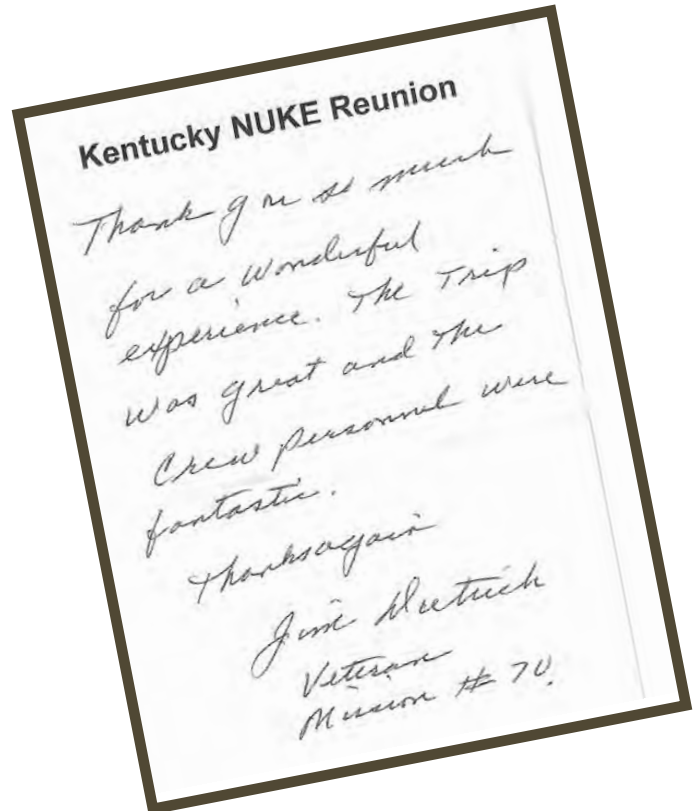 Kentucky NUKE Reunion
Thank you so much
for a wonderful
experience. The Trip
was great and the
Crew personnel were
fantastic.
Thanks again
Jim Dietrich
Veteran
Mission # 70.